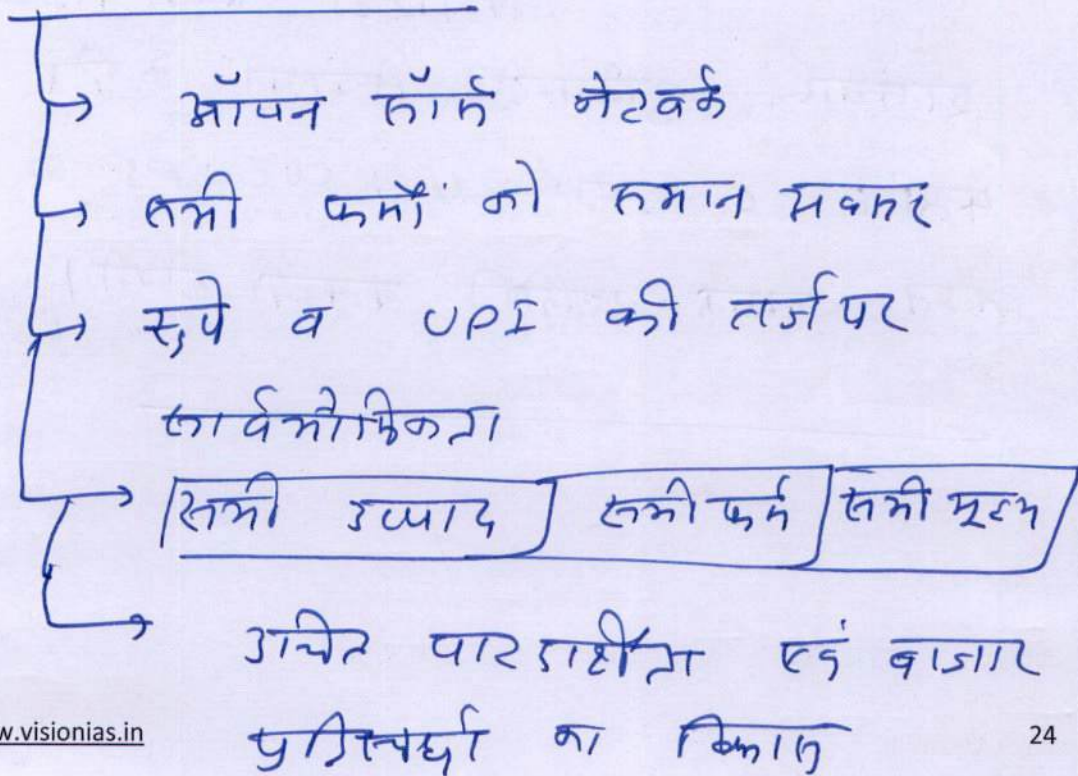 ऑपन सॉर्स नेटवर्क
सभी फर्मों को समान अवसर
रुपे व UPI की तर्ज पर
सार्वभौमिकता
सभी उत्पाद सभी फर्म सभी मूल्य
उचित पारदर्शीता एवं बाजार
प्रतिस्पर्धा का विकास
w.visionias.in
24